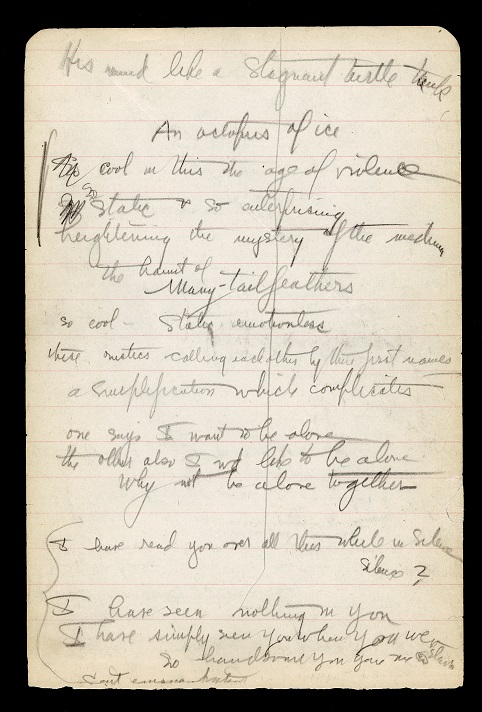 His mind like a Stagnant turtle tank
An octopus of ice
so cool in this the age of violence
so static & so enterprising
heightening the mystery of the medium
the haunt of
Many-tail feathers
so cool static emotionless
these rustics calling each other by their first names
a simplification which complicates
one says I want to be alone
the other also I wd like to be alone
Why not be alone together
I have read you over all this while in Silence
Silence ?
I have seen nothing in you
I have simply seen you when you were
so handsome you gave me a start